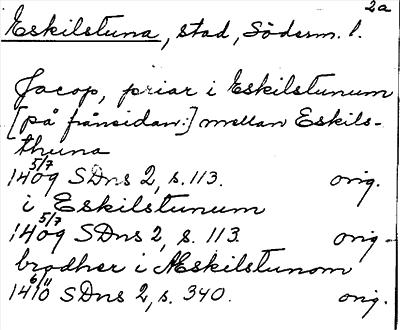 2a
Eskilstuna, stad, Söderm. l.
Jacop, priar i Eskilstunum
[på frånsidan:] mellan Eskils-
thuna
5/7
1409 SDns 2, s. 113. orig.
i Eskilstunum
5/7
1409 SDns 2, s. 113. orig.
brodher i Æskilstunom
6/11
1410 SDns 2, s. 340. orig.